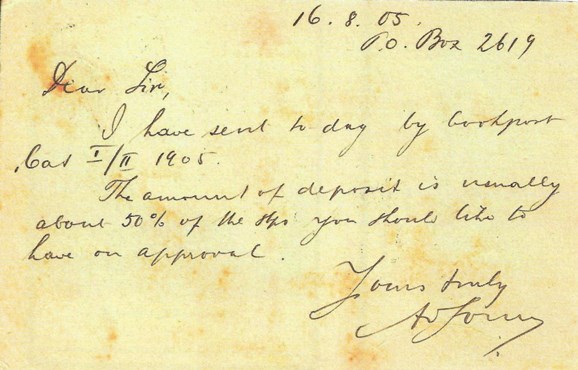 16. 8. 05.
P.O. Box 2619
Dear Sir,
I have sent to day by bookpost
Cat I/II 1905.
The amount of deposit is usually
about 50% of the stps you should like to
have on approval.
Yours truly